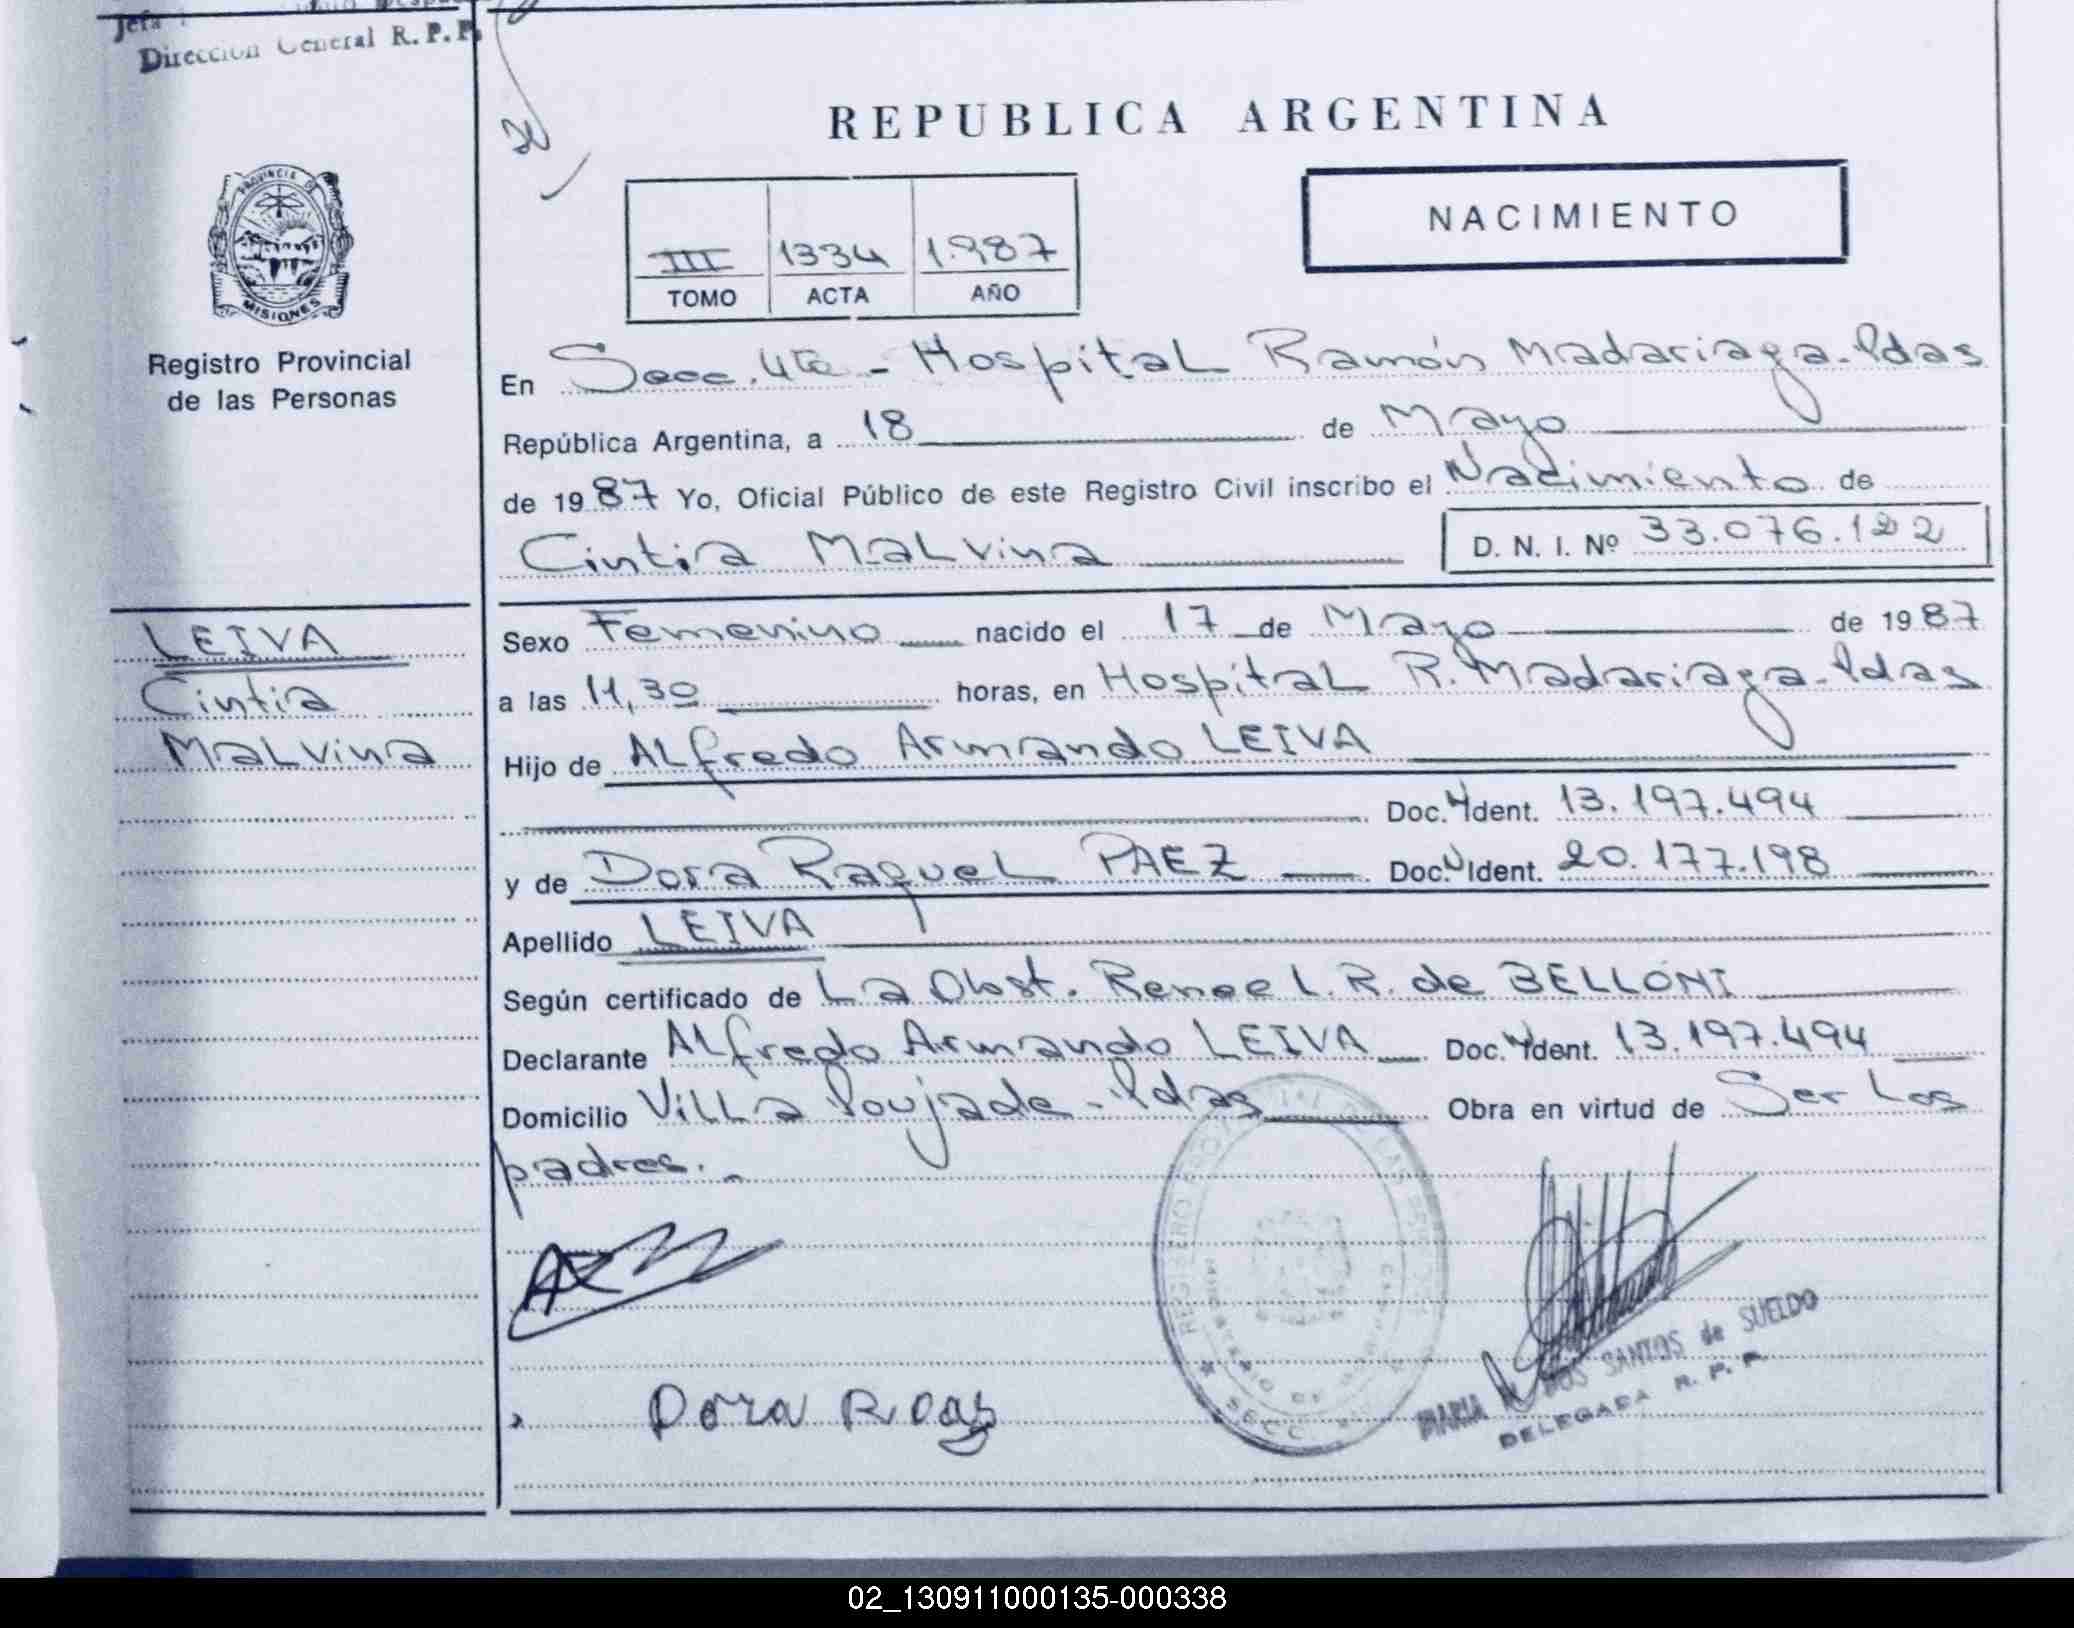 Jefa
Dirección General R. P. P.
REPUBLICA ARGENTINA
PROVINCIA DE
MISIONES
Registro Provincial
de las Personas
III 1334 1.987
TOMO ACTA AÑO
NACIMIENTO
En Secc. 4ta - Hospital Ramón Madariaga-Pdas
República Argentina, a 18 de Mayo
de 1987 Yo, Oficial Público de este Registro Civil inscribo el Nacimiento de
Cintia Malvina D. N. I. Nº 33.076.122
LEIVA
Cintia
Malvina
Sexo Femenino nacido el 17 de Mayo de 1987
a las 11,30 horas, en Hospital R. Madariaga-Pdas
Hijo de Alfredo Armando LEIVA
Doc. Ident. 13.197.494
y de Dora Raquel PAEZ Doc. Ident. 20.177.198
Apellido LEIVA
Según certificado de La Obst. Renee L. R. de BELLONI
Declarante Alfredo Armando LEIVA Doc. Ident. 13.197.494
Domicilio Villa Poujade - Pdas Obra en virtud de Ser los
padres.-
Dora
REGISTRO
SECC.
MARIA DOS SANTOS de SUELDO
DELEGADA R. P. P.
02_130911000135-000338